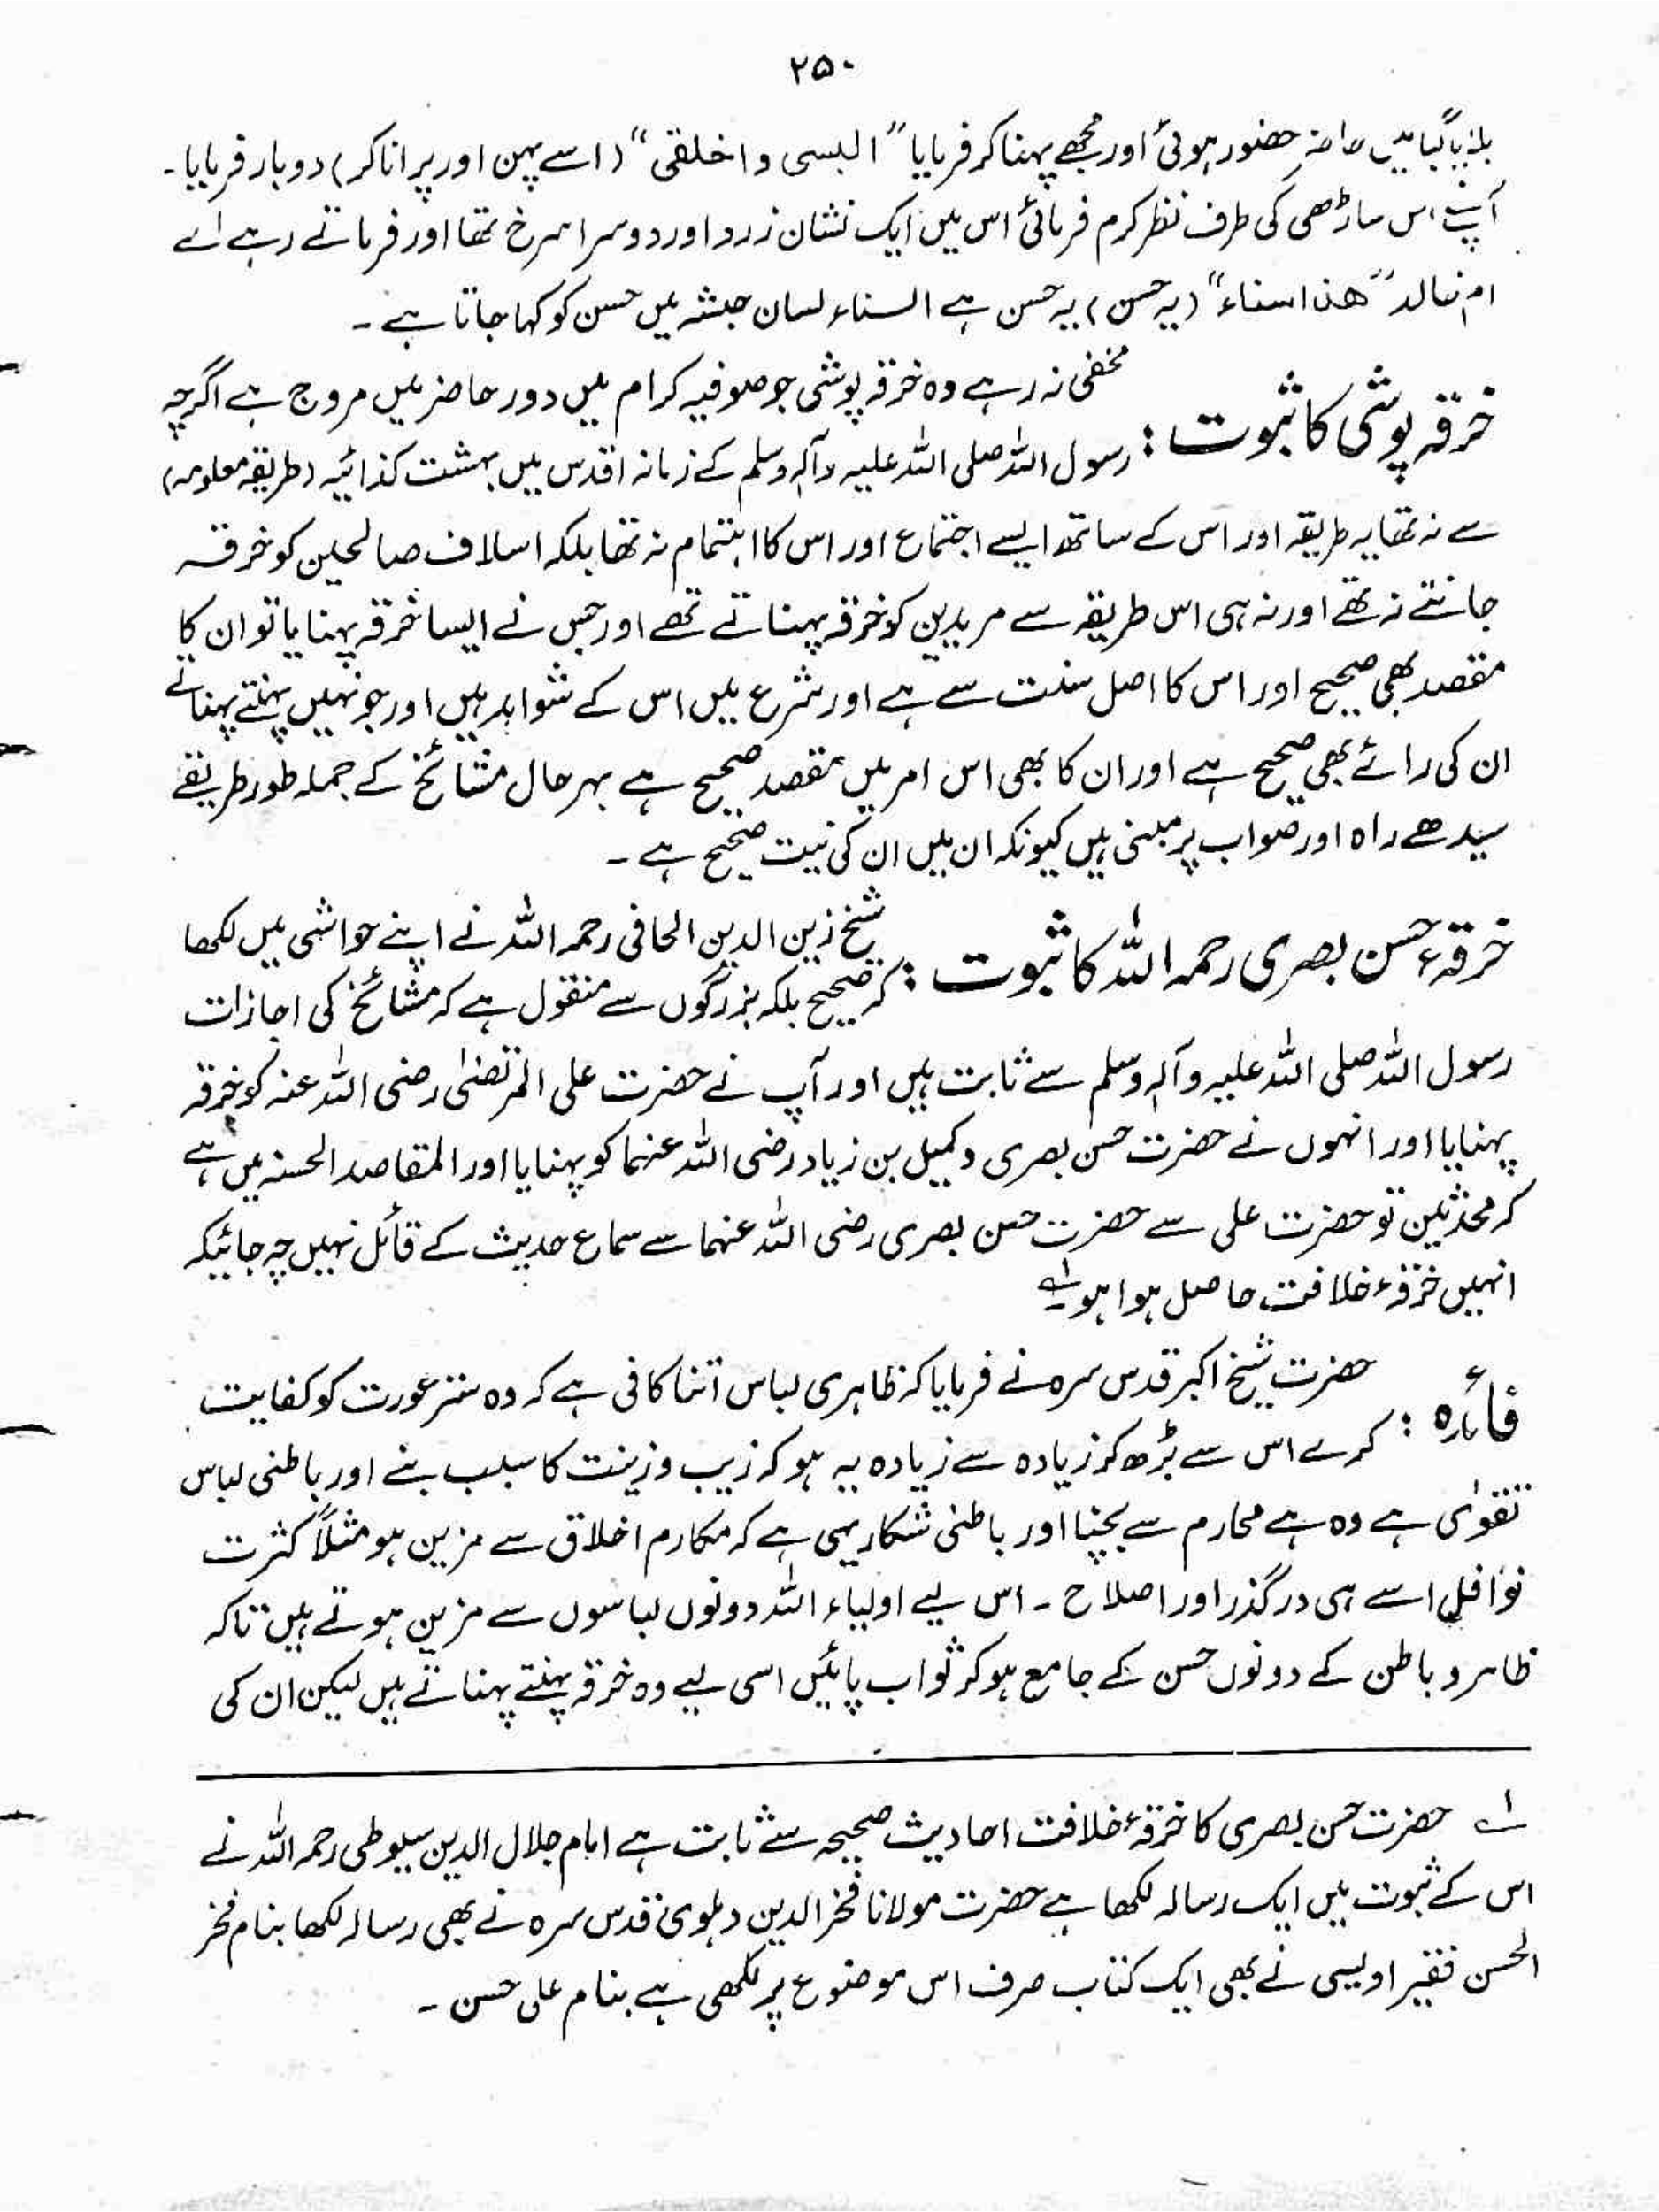 ۲۵۰
بلایا گیا میں حاضر حضور ہوئی اور مجھے پہنا کر فرمایا ”البسی و اخلقی“ (اسے پہن اور پرانا کر) دو بار فرمایا۔
آپ نے اس ساڑھی کی طرف نظر کرم فرمائی اس میں ایک نشان زرد اور دوسرا سرخ تھا اور فرماتے رہے اے
ام خالد ”ھذا سناء“ (یہ حسن) یہ حسن ہے السناء لسان حبشہ میں حسن کو کہا جاتا ہے۔
خرقہ پوشی کا ثبوت : مخفی نہ رہے وہ خرقہ پوشی جو صوفیہ کرام میں دور حاضر میں مروج ہے اگرچہ
رسول اللہ صلی اللہ علیہ وآلہ وسلم کے زمانہ اقدس میں بہشت کذائیہ (طریقہ معلومہ)
سے نہ تھا یہ طریقہ اور اس کے ساتھ ایسے اجتماع اور اس کا اہتمام نہ تھا بلکہ اسلاف صالحین کو خرقہ
جانتے نہ تھے اور نہ ہی اس طریقہ سے مریدین کو خرقہ پہناتے تھے اور جس نے ایسا خرقہ پہنایا تو ان کا
مقصد بھی صحیح اور اس کا اصل سنت سے ہے اور شرع میں اس کے شواہد ہیں اور جو نہیں پہنتے پہناتے
ان کی رائے بھی صحیح ہے اور ان کا بھی اس امر میں مقصد صحیح ہے بہر حال مشائخ کے جملہ طور طریقے
سیدھے راہ اور صواب پر مبنی ہیں کیونکہ ان میں ان کی نیت صحیح ہے۔
خرقہء حسن بصری رحمہ اللہ کا ثبوت : شیخ زین الدین الحافی رحمہ اللہ نے اپنے حواشی میں لکھا
کہ صحیح بلکہ بزرگوں سے منقول ہے کہ مشائخ کی اجازات
رسول اللہ صلی اللہ علیہ وآلہ وسلم سے ثابت ہیں اور آپ نے حضرت علی المرتضیٰ رضی اللہ عنہ کو خرقہ
پہنایا اور انہوں نے حضرت حسن بصری و کمیل بن زیاد رضی اللہ عنہما کو پہنایا اور المقاصد الحسنہ میں ہے
کہ محدثین تو حضرت علی سے حضرت حسن بصری رضی اللہ عنہما سے سماع حدیث کے قائل نہیں چہ جائیکہ
انہیں خرقہء خلافت حاصل ہوا ہو۔ ؂۱
فائدہ : حضرت شیخ اکبر قدس سرہ نے فرمایا کہ ظاہری لباس اتنا کافی ہے کہ وہ ستر عورت کو کفایت
کرے اس سے بڑھ کر زیادہ سے زیادہ یہ ہو کہ زیب و زینت کا سبب بنے اور باطنی لباس
تقوٰی ہے وہ ہے محارم سے بچنا اور باطنی شکار یہی ہے کہ مکارم اخلاق سے مزین ہو مثلاً کثرت
نوافل اسے ہی درگذر اور اصلاح۔ اس لیے اولیاء اللہ دونوں لباسوں سے مزین ہوتے ہیں تاکہ
ظاہر و باطن کے دونوں حسن کے جامع ہو کر ثواب پائیں اسی لیے وہ خرقہ پہنتے پہناتے ہیں لیکن ان کی
؂۱ حضرت حسن بصری کا خرقہء خلافت احادیث صحیحہ سے ثابت ہے امام جلال الدین سیوطی رحمہ اللہ نے
اس کے ثبوت میں ایک رسالہ لکھا ہے حضرت مولانا فخر الدین دہلوی قدس سرہ نے بھی رسالہ لکھا بنام فخر
الحسن فقیر اویسی نے بھی ایک کتاب صرف اس موضوع پر لکھی ہے بنام علی حسن۔